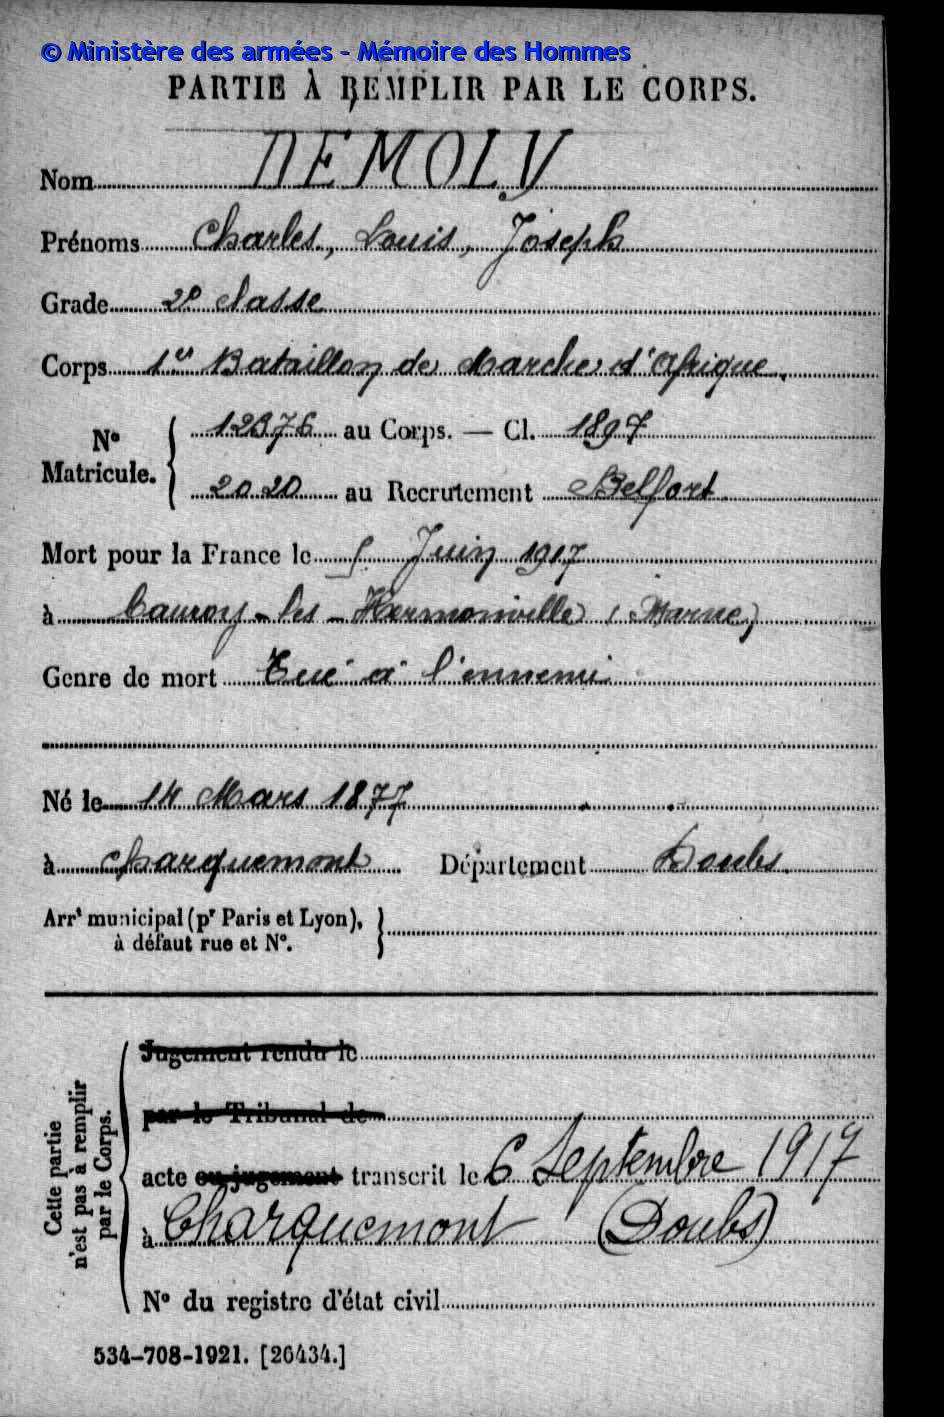 © Ministère des armées - Mémoire des Hommes
PARTIE À REMPLIR PAR LE CORPS.
Nom DEMOLY
Prénoms Charles, Louis, Joseph
Grade 2e classe
Corps 1er Bataillon de Marche d'Afrique.
N° Matricule. { 12376 au Corps. — Cl. 1897
2020 au Recrutement Belfort
Mort pour la France le 5 Juin 1917
à Cauroy-les-Hermonville (Marne)
Genre de mort Tué à l'ennemi
Né le 14 Mars 1877
à Charquemont Département Doubs
Arrt municipal (pr Paris et Lyon),
à défaut rue et N°.
Cette partie
n'est pas à remplir
par le Corps.
Jugement rendu le
par le Tribunal de
acte ou jugement transcrit le 6 Septembre 1917
à Charquemont (Doubs)
N° du registre d'état civil
534-708-1921. [26434.]